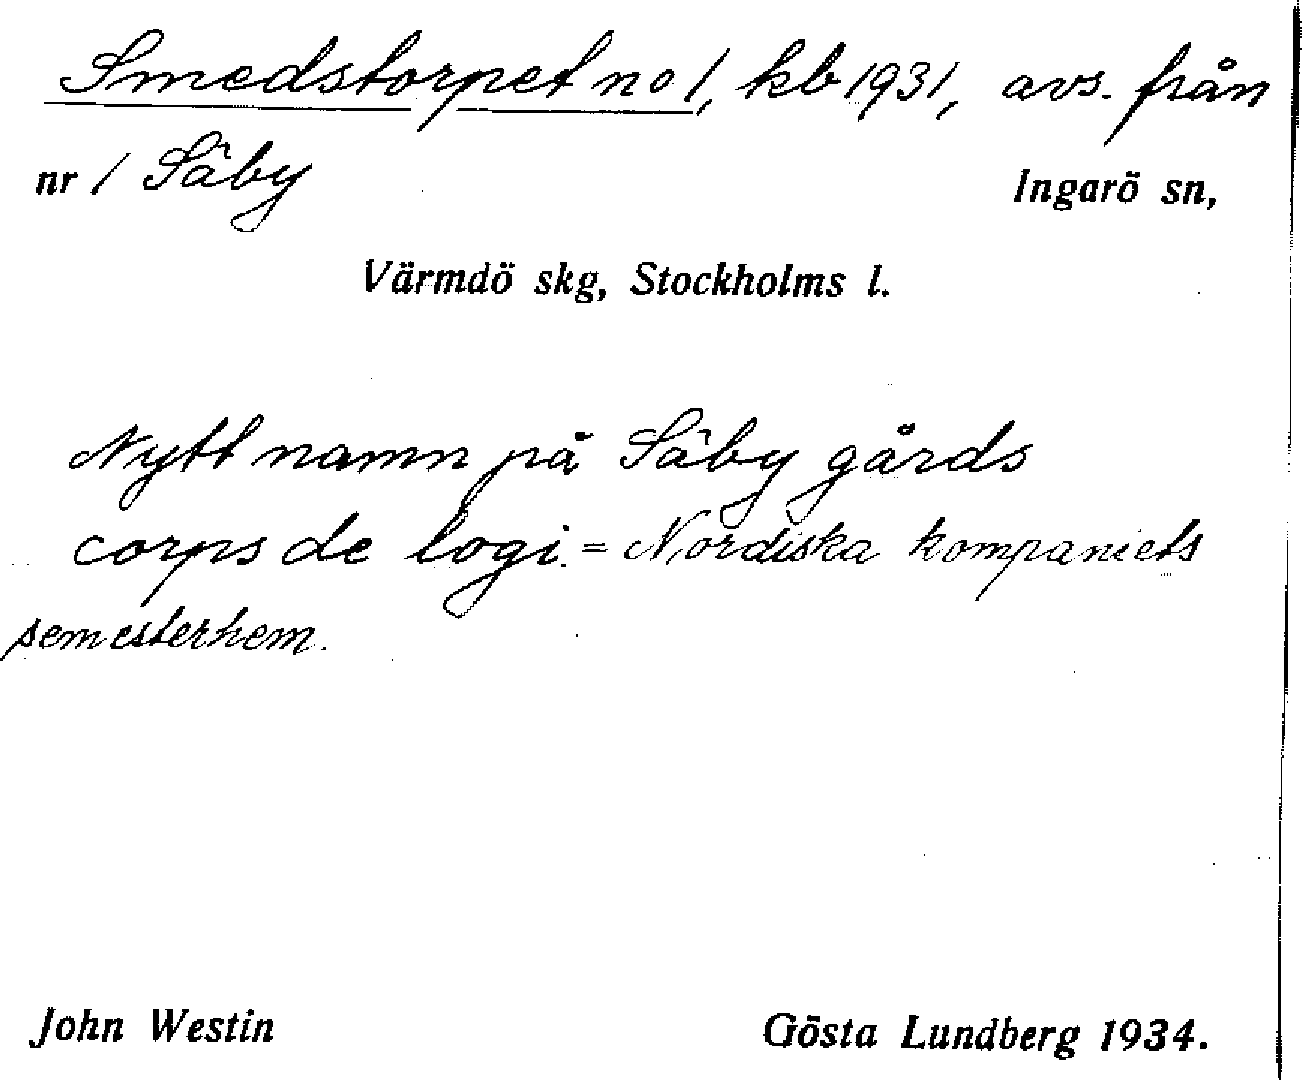 Smedstorpet no 1, kb 1931, avs. från
nr 1 Säby Ingarö sn,
Värmdö skg, Stockholms l.
Nytt namn på Säby gårds
corps de logi. = Nordiska kompaniets
semesterhem.
John Westin Gösta Lundberg 1934.